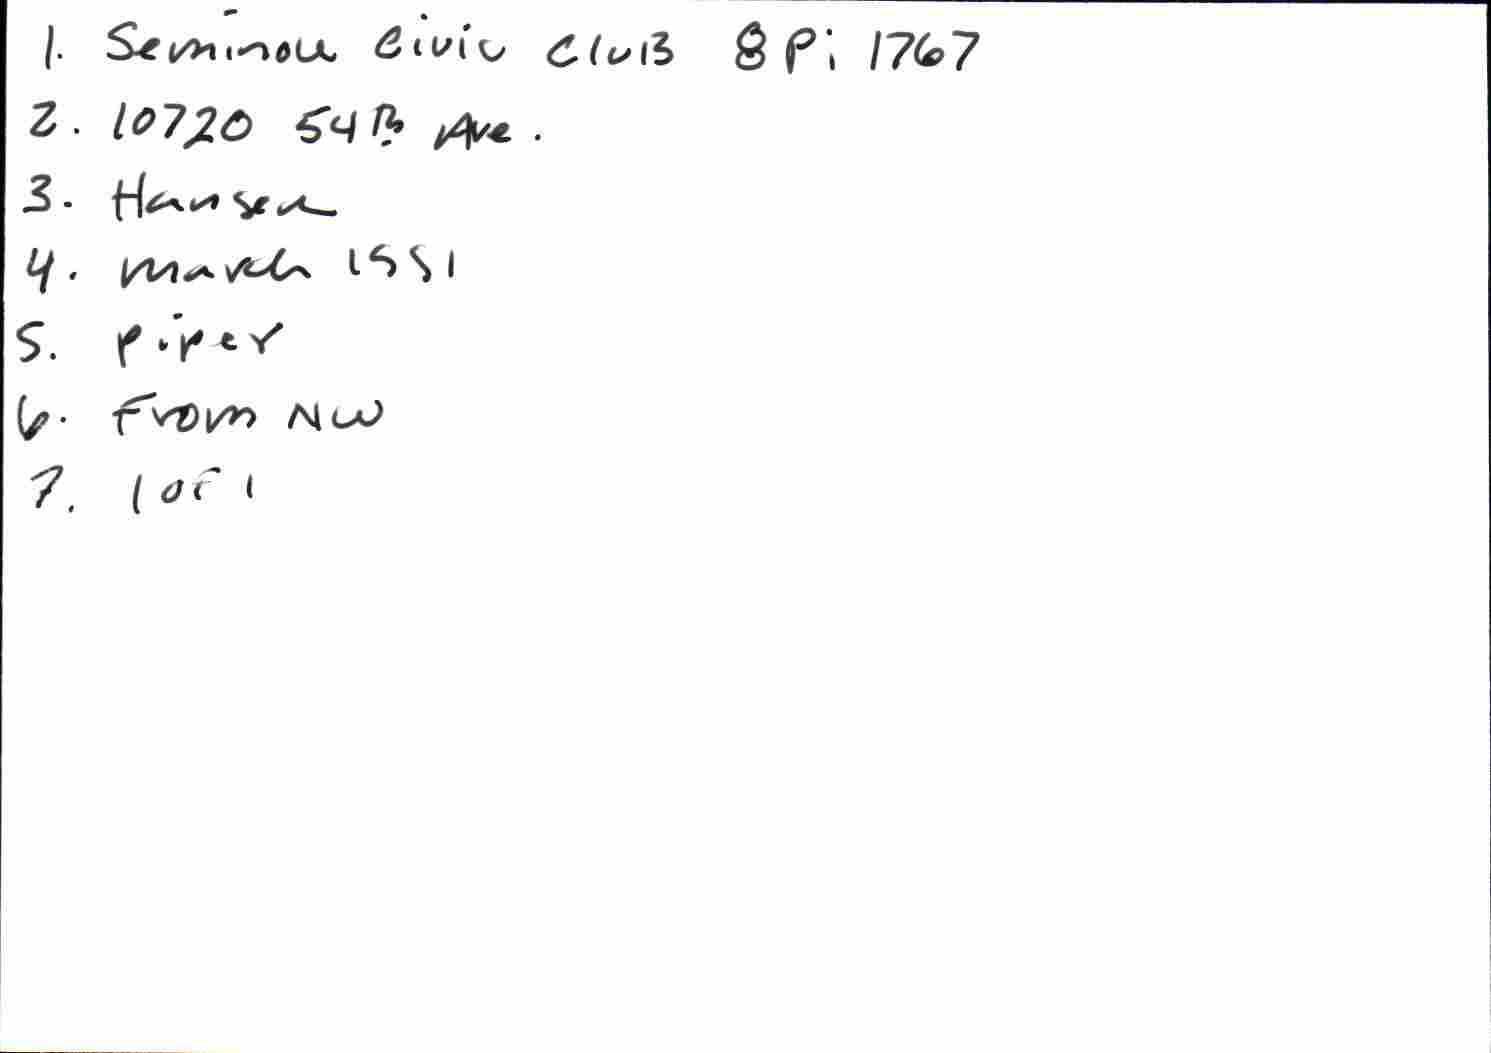 1. Seminole Civic Club 8Pi 1767
2. 10720 54th Ave.
3. Hansen
4. March 1991
5. Piper
6. From NW
7. 1 of 1